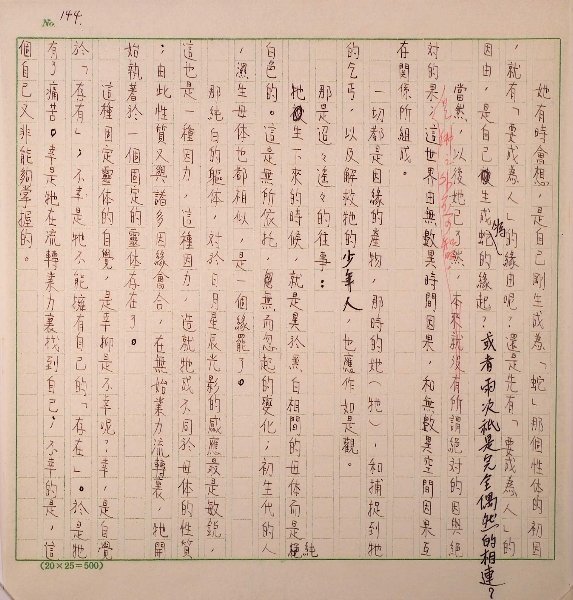 No. 144.
她有時會想，是自己剛生成為「蛇」那個性体的初因
，就有「要成為人」的緣由呢？還是先有「要成為人」的
因由，是自己生成蛇的緣起？或者兩次祇是完全偶然的相連？
當然，以後她已了然，本來就沒有所謂絕對的因與絕
對的果，這世界由無數異時間因果，和無數異空間因果互
在關係所組成。
一切都是因緣的產物，那時的她（牠），和捕捉到牠
的乞丐，以及解救牠的少年人，也應作如是觀。
那是迢々遙々的往事：
牠生下來的時候，就是異於黑白相間的母体而是純
白色的。這是無所依托，無而忽起的變化；初生代的人
，濕生母体也都相似，是一個緣罷了。
那純白的軀体，對於日月星辰光影的感應最是敏銳，
這也是一種因力，這種因力，造就牠或不同於母体的性質
；由此性質又與諸多因緣會合，在無始業力流轉裏，牠開
始執著於一個固定的靈体存在了。
這種固定靈体的自覺，是幸抑是不幸呢？幸，是自覺
於「存有」；不幸是牠不能擁有自己的「存在」。於是牠
有了痛苦。幸是牠在流轉業力裏找到自己；不幸的是，這
個自己又非能夠掌握的。
(20×25=500)